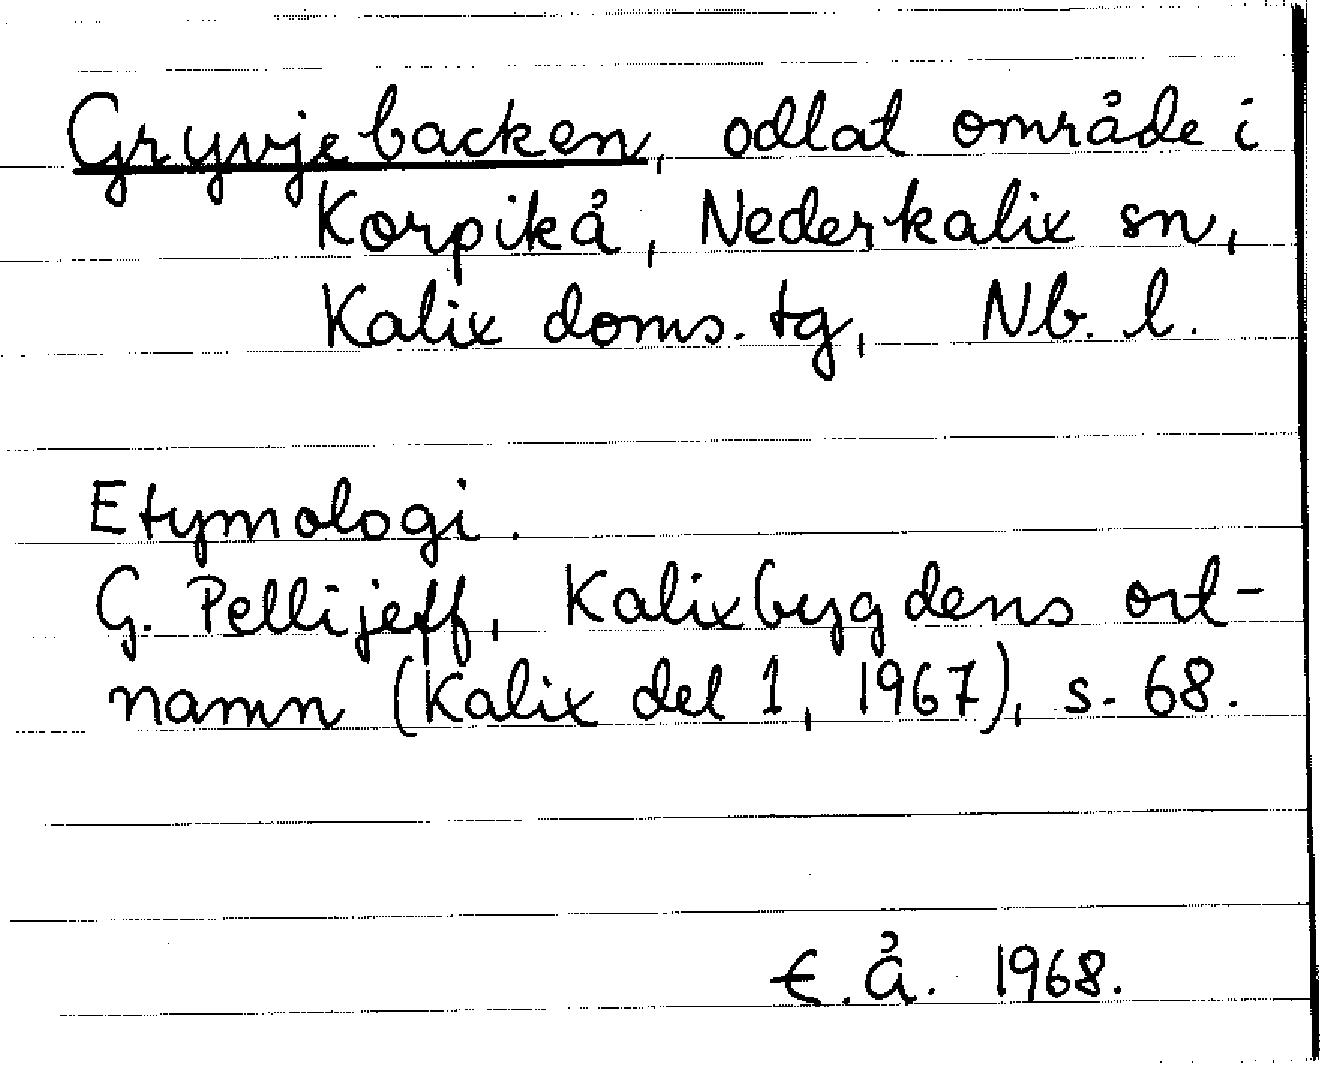 Gryvjebacken, odlat område i
Korpikå, Nederkalix sn,
Kalix doms. tg, Nb. l.
Etymologi.
G. Pellijeff, Kalixbygdens ort-
namn (Kalix del 1, 1967), s. 68.
E. Å. 1968.